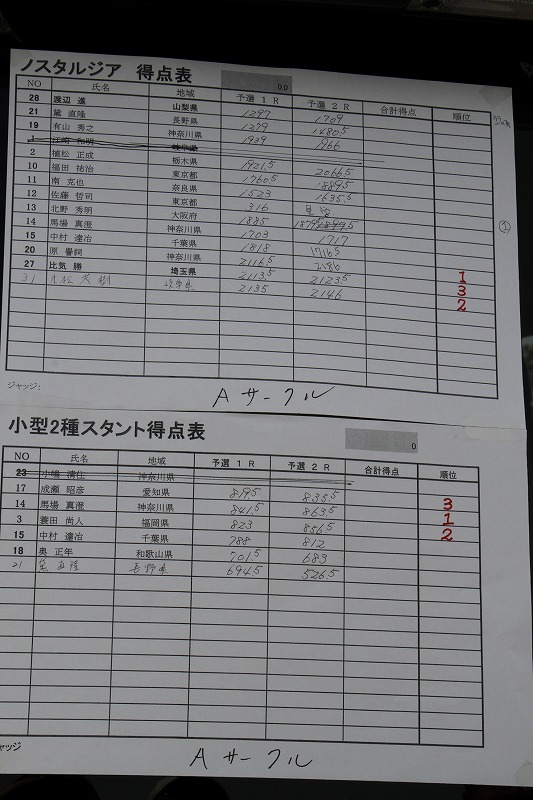 ノスタルジア 得点表
00
NO 氏名 地域 予選1R 予選2R 合計得点 順位
28 渡辺 進 山梨県 1297 1709
21 黛 直隆 長野県 1379 14805
19 有山 秀之 神奈川県 1939 1966
1 江崎 和明 岐阜県
2 植松 正成 栃木県 19215 20665
10 福田 祐治 東京都 17605 18895
11 南 克也 奈良県 1523 16355
12 佐藤 哲司 東京都 316
13 北野 秀明 大阪府 1885
14 馬場 真澄 神奈川県 1703 1717
15 中村 達治 千葉県 1818 17165
20 原 誉詞 神奈川県 21165 2186 1
27 比気 勝 埼玉県 21135 21235 3
31 岐阜県 2135 2146 2
①
ジャッジ:
Aサークル
小型2種スタント得点表
0
NO 氏名 地域 予選1R 予選2R 合計得点 順位
23 小嶋 清仕 神奈川県
17 成瀬 昭彦 愛知県 8195 8355 3
14 馬場 真澄 神奈川県 8415 8635 1
3 蓑田 尚人 福岡県 823 8565 2
15 中村 達治 千葉県 788 812
18 奥 正年 和歌山県 7015 683
21 黛 直隆 長野県 6945 5265
ャッジ
Aサークル